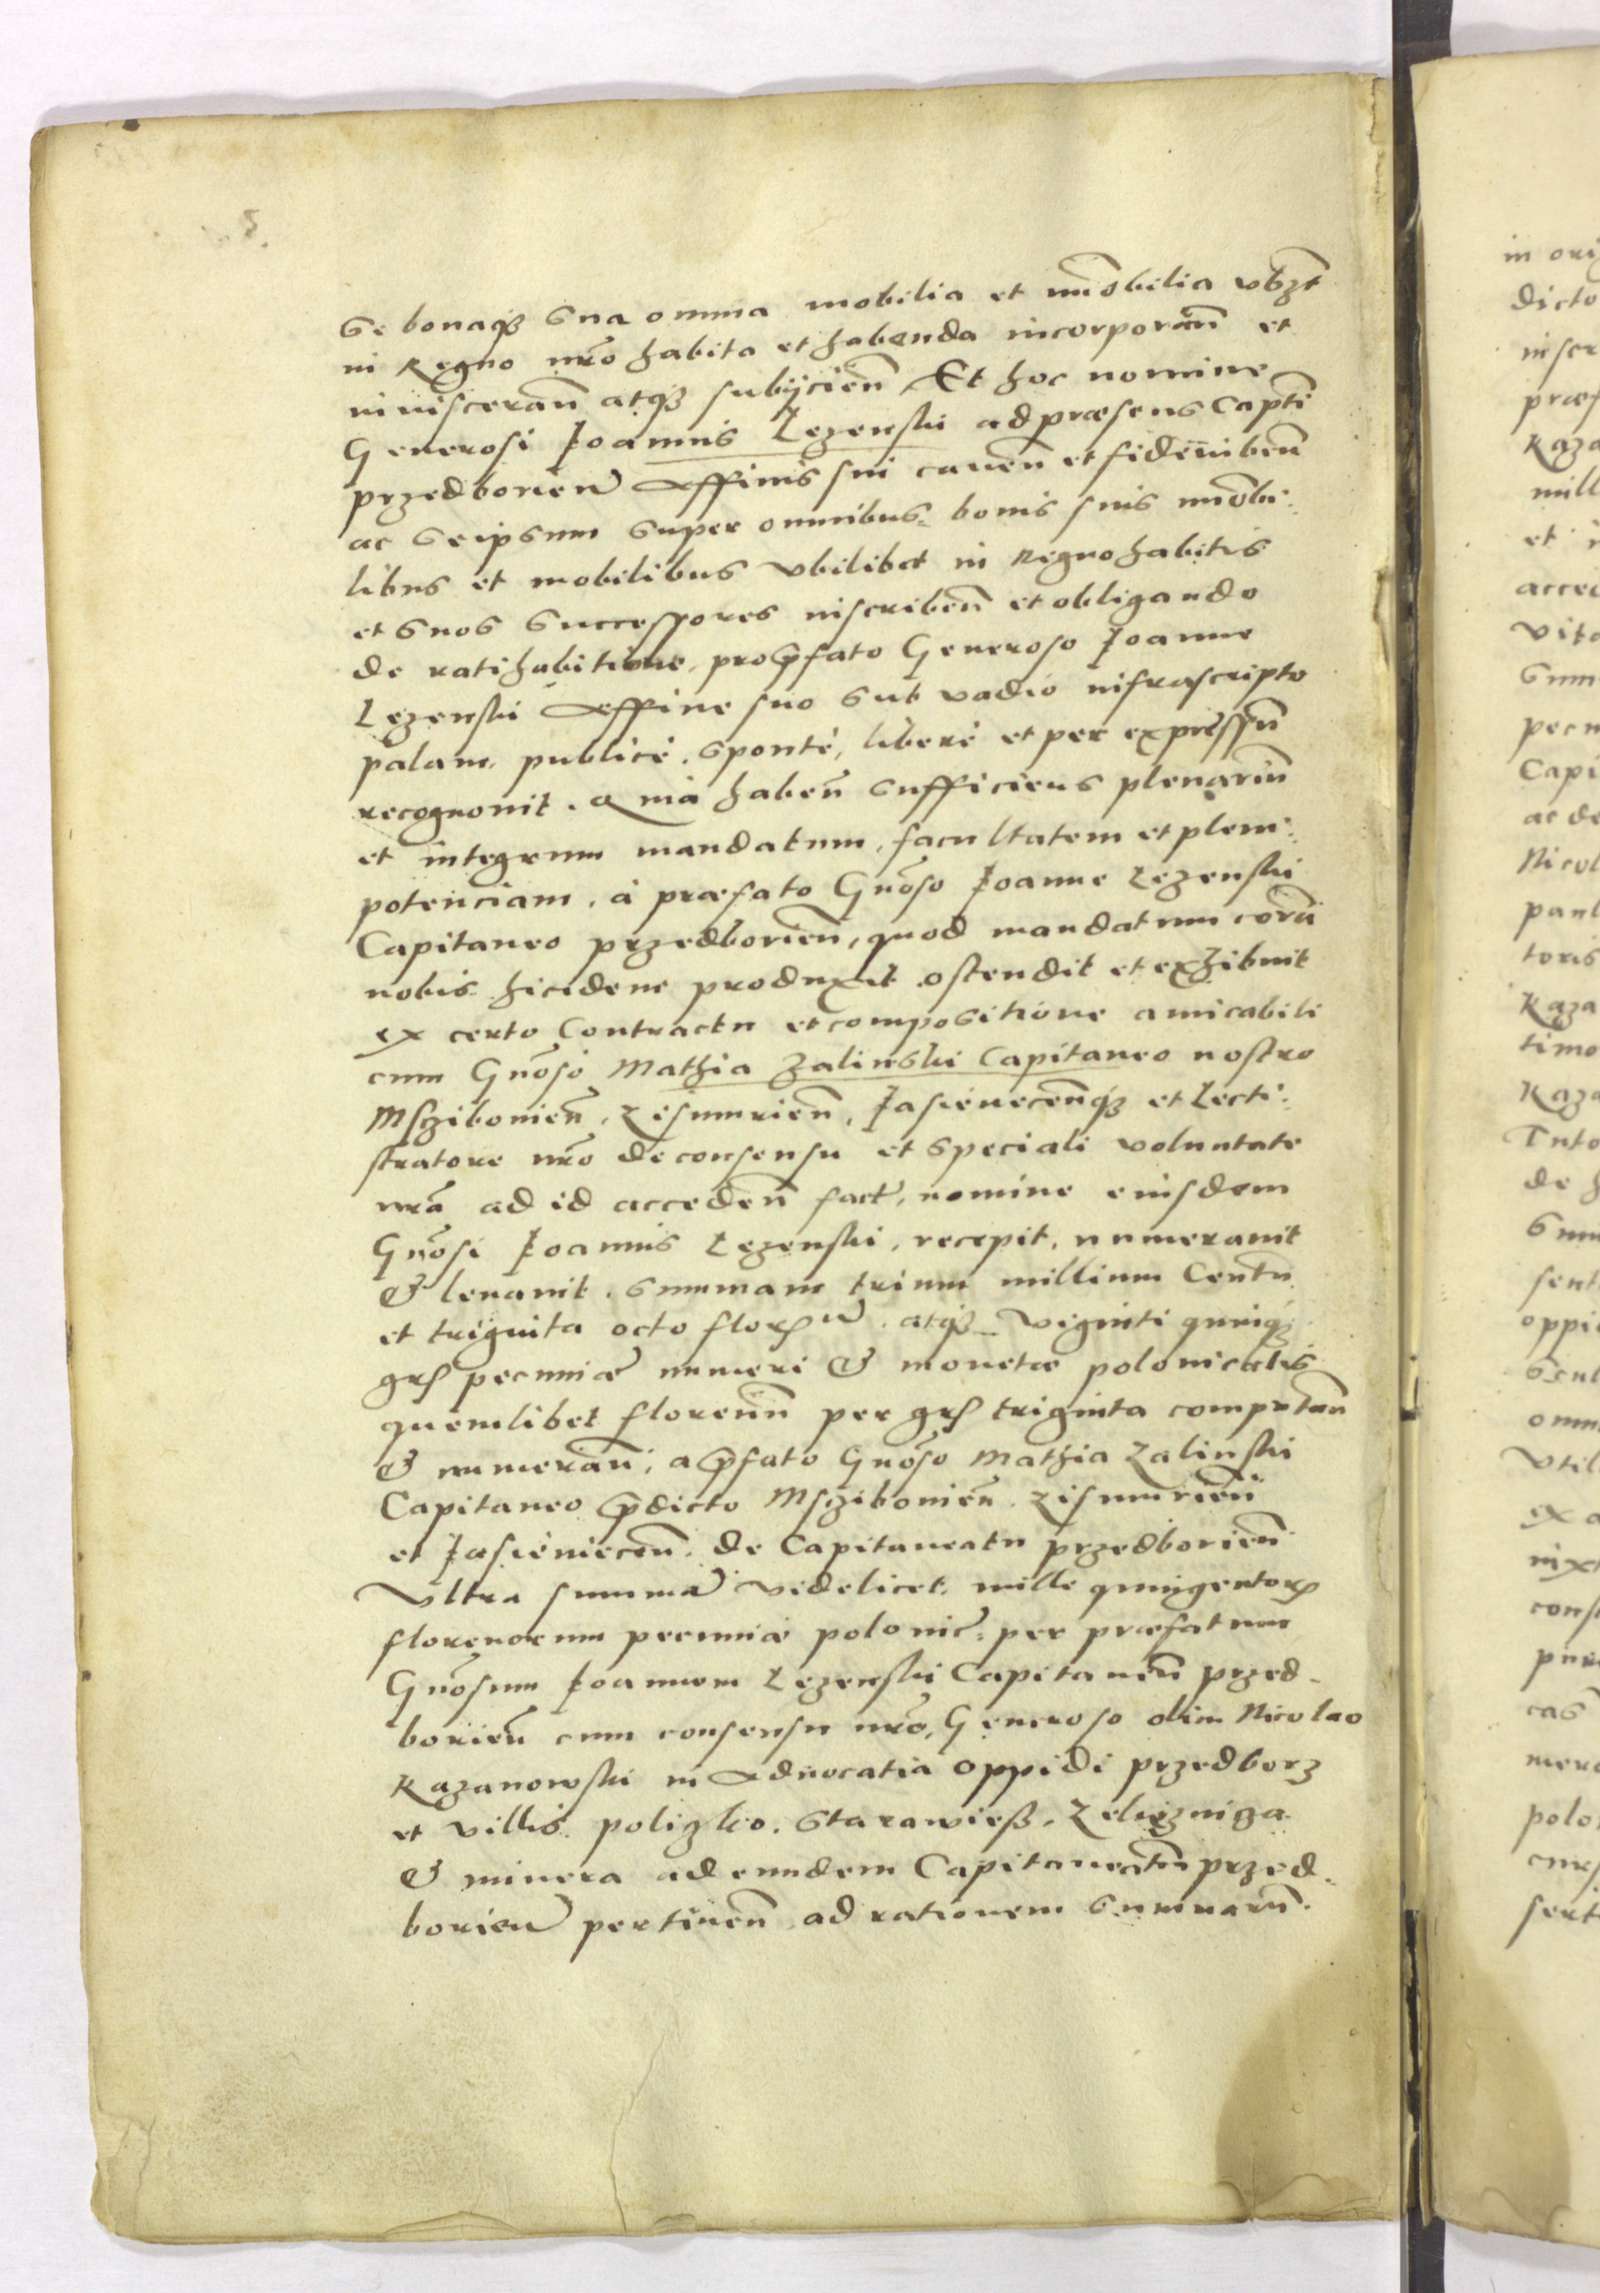 5.
Se bonaqʒ sua omnia mobilia et im̄obilia vbʒt
in Regno nr̄o habita et habenda incorporan̄ et
inuisceran̄ atqʒ subijcien̄ Et hoc nomine
Generosi Joannis Lezenski ad præsens Capt̄i
przedborien̄ Affinis sui cauen̄ et fideiuben̄
ac seipsum super omnibus bonis suis im̄obi:
libus et mobilibus vbilibet in Regno habitis
et suos successores inscriben̄ et obligando
de ratihabitione, pro p̄fato Generoso Joanne
Lezenski Affine suo sub vadio infrascripto
palam, publicè, spontè, liberè et per expressu̅
recognouit. Quia haben̄ sufficiens plenariu̅
et integrum mandatum, facultatem et pleni:
potenciam, à præfato Gn̄oso Joanne Lezenski
Capitaneo przedborien̄, quod mandatum cora̅
nobis hicidem produxit ostendit et exhibuit
ex certo Contractu et compositione amicabili
cum Gn̄oso Mathia Zalinski Capitaneo nostro
Msczibouien̄, Zisimrien̄, Jasienecen̄qʒ et Lecti:
stratore nr̄o de consensu et speciali voluntate
nr̄a ad id acceden̄ fact̄, nomine eiusdem
Gn̄osi Joannis Lezenski, recepit, numerauit
& leuauit, summam trium millium Centu̅
et triginta octo flor̄ atqʒ viginti quinqʒ
gr̄ pecuniæ numeri & monetæ polonicalis
quemlibet florenu̅ per gr̄ triginta computan̄
& numeran̄, a p̄fato Gn̄oso Mathia Zalinski
Capitaneo p̄dicto Msczibouien̄ Zisimrien̄
et Jasieniecen̄ de Capitaneatu przedborien̄
Vltra summa̅ videlicet mille quingentor̄
florenorum pecuniæ polonic̄: per præfatum
Gn̄osum Joannem Lezenski Capitaneu̅ przed-
borien̄ cum consensu nr̄o, Generoso olim Nicolao
Kazanowski in Aduocatia oppidi przedborz
et villis policzko, Starawieß, Zelięzniza
& minera ad eundem Capitaneatu̅ przed-
borien̄ pertinen̄ ad rationem summaru̅.